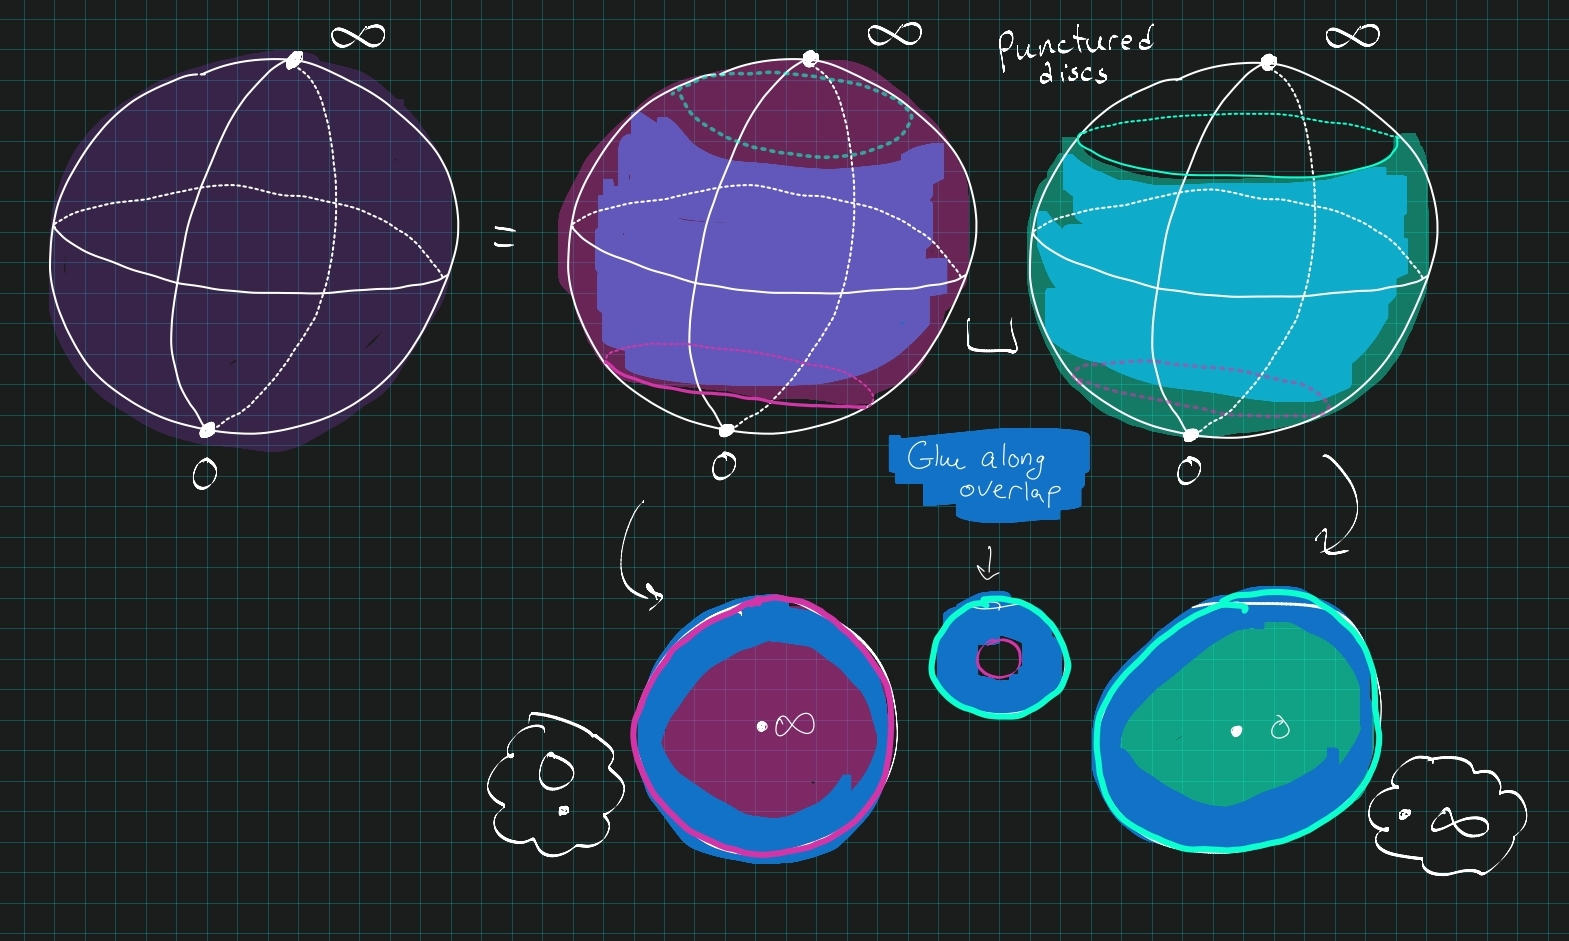 ∞
∞
Punctured
discs
∞
=
⊔
0
0
0
Glue along
overlap
∞
0
0
∞